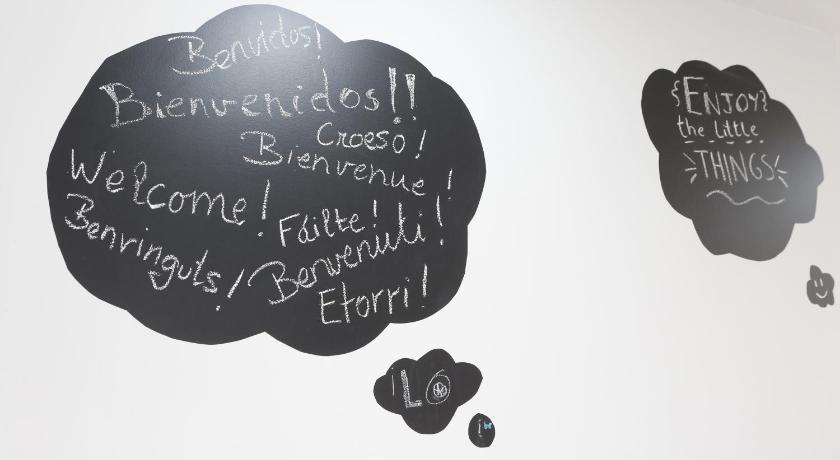 Benvidos!
Bienvenidos!!
Croeso!
Bienvenue!
Welcome!
Fáilte!
Benvinguts!
Benvenuti!
Etorri!
{ENJOY}
the little
THINGS